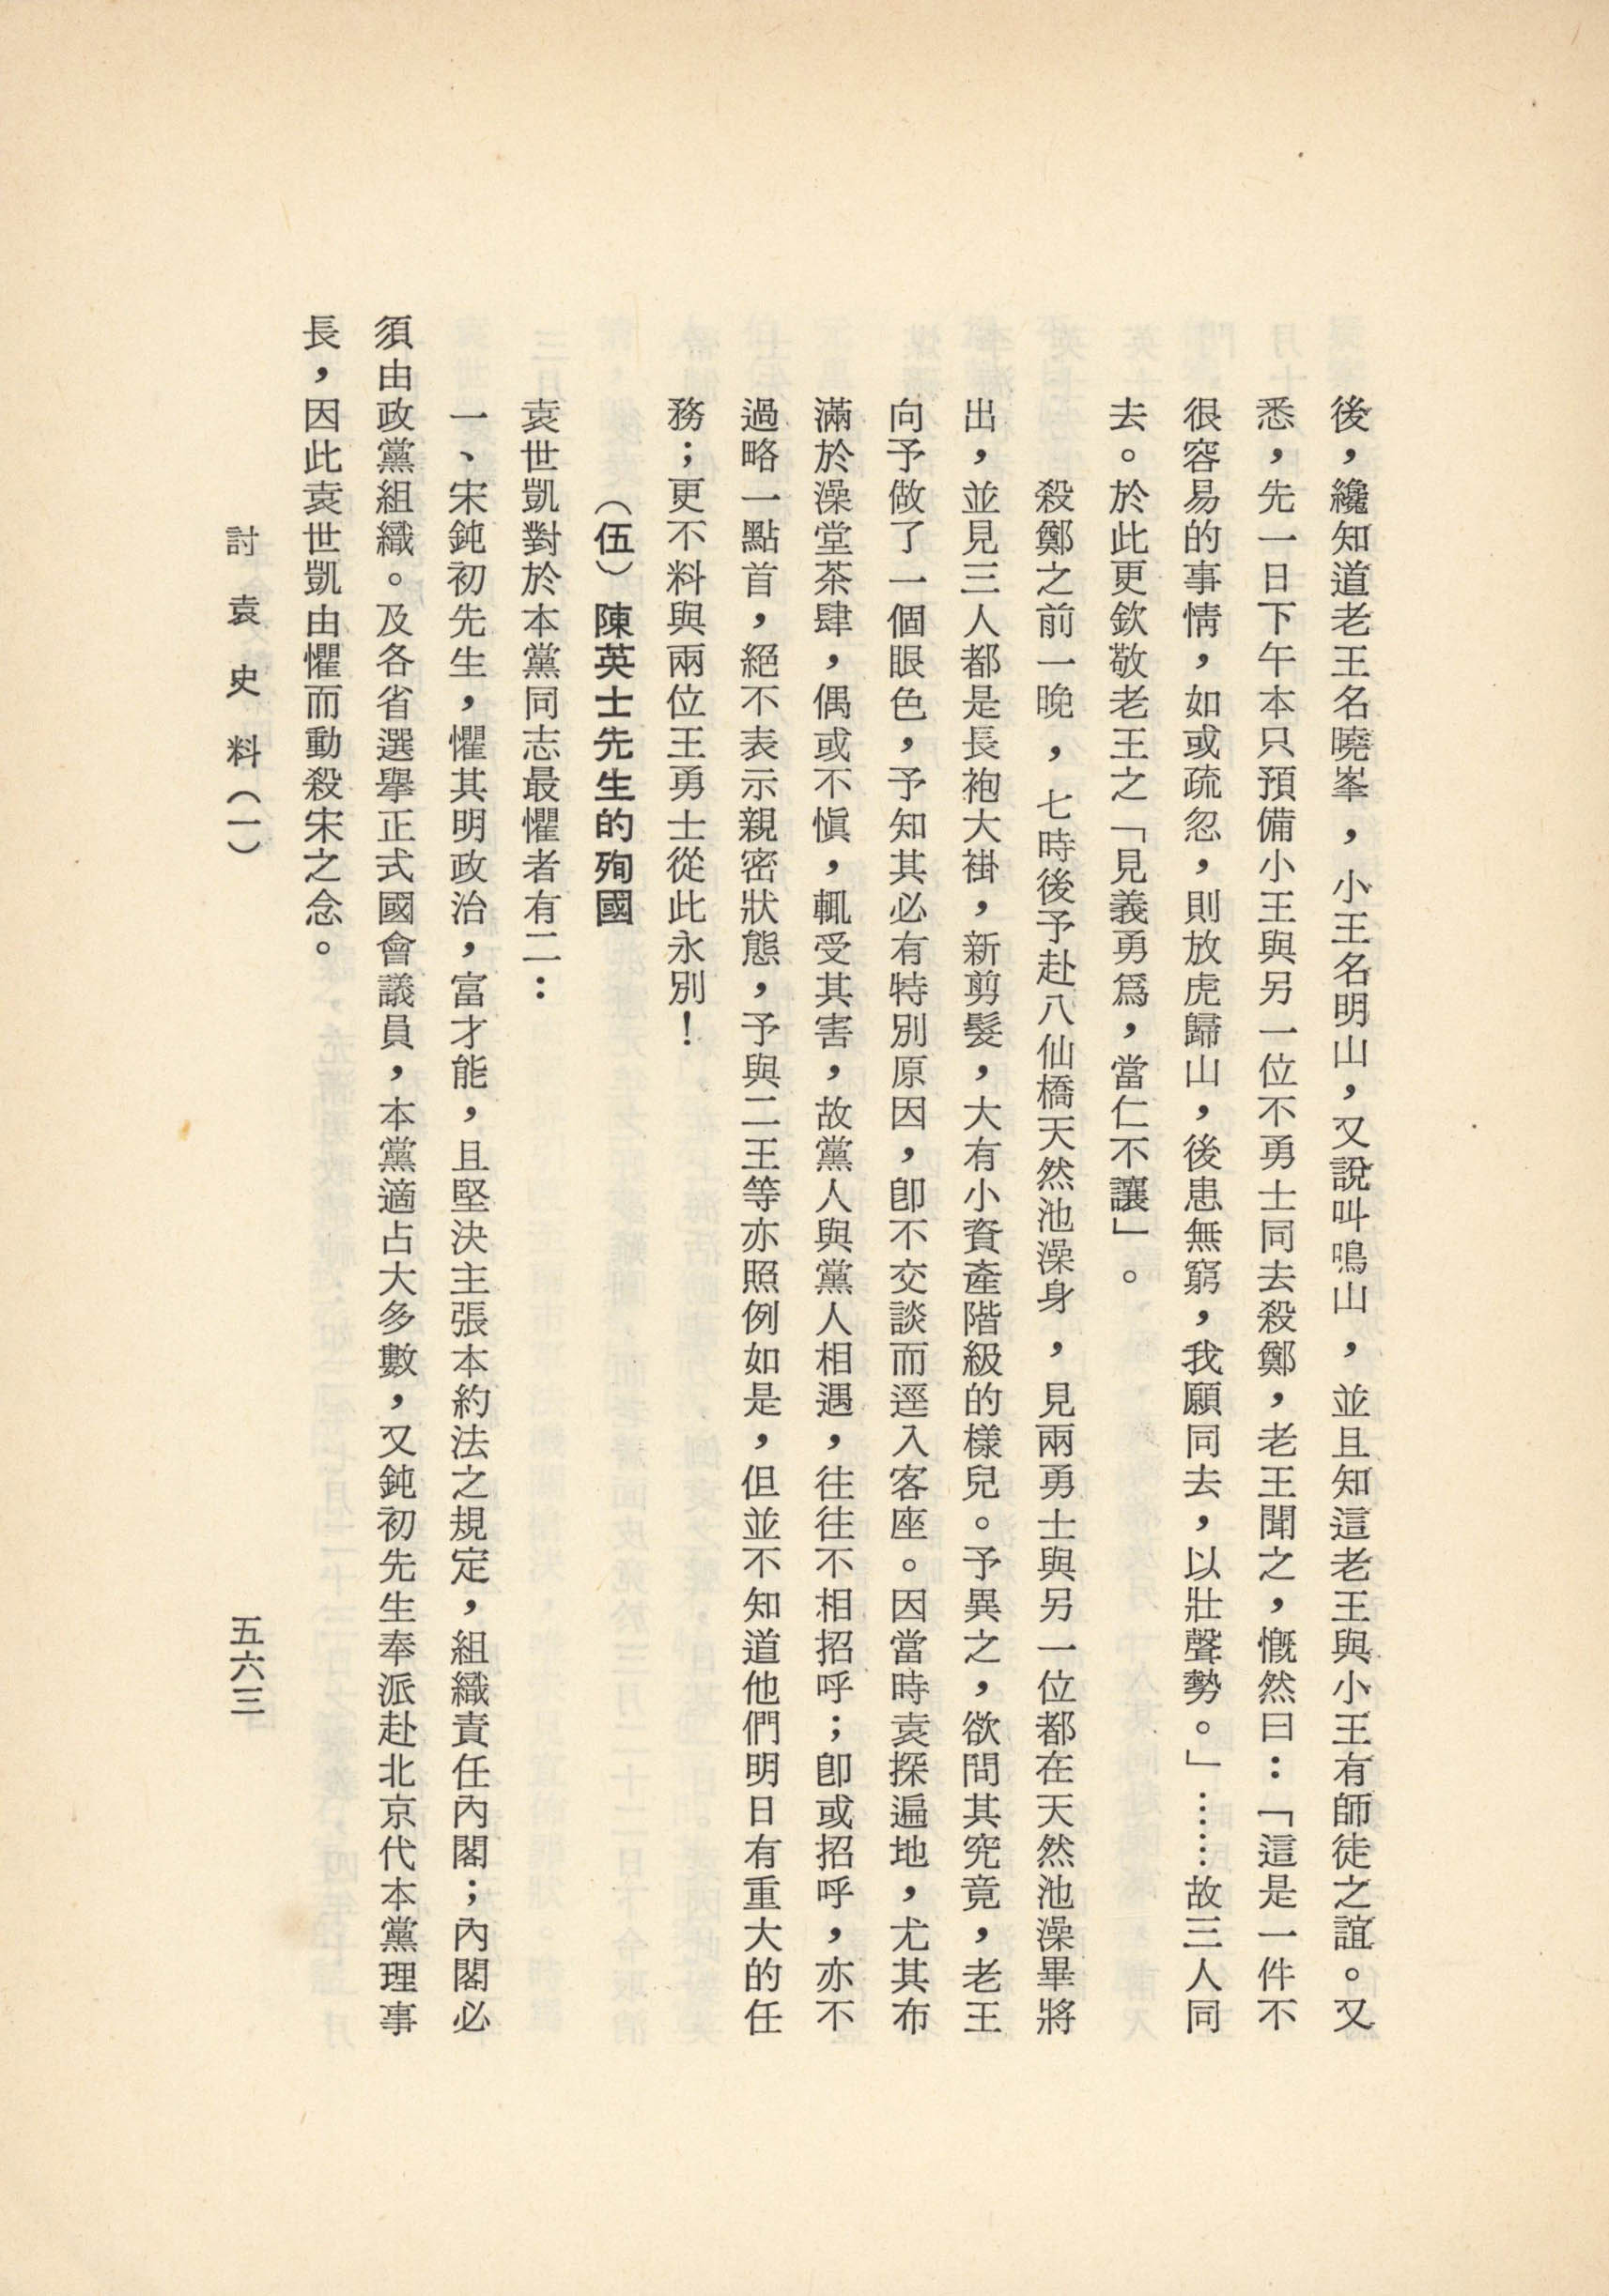 後，纔知道老王名曉峯，小王名明山，又說叫鳴山，並且知這老王與小王有師徒之誼。又
悉，先一日下午本只預備小王與另一位不勇士同去殺鄭，老王聞之，慨然曰：「這是一件不
很容易的事情，如或疏忽，則放虎歸山，後患無窮，我願同去，以壯聲勢。」……故三人同
去。於此更欽敬老王之「見義勇爲，當仁不讓」。
殺鄭之前一晚，七時後予赴八仙橋天然池澡身，見兩勇士與另一位都在天然池澡畢將
出，並見三人都是長袍大褂，新剪髮，大有小資產階級的樣兒。予異之，欲問其究竟，老王
向予做了一個眼色，予知其必有特別原因，卽不交談而逕入客座。因當時袁探遍地，尤其布
滿於澡堂茶肆，偶或不愼，輒受其害，故黨人與黨人相遇，往往不相招呼；卽或招呼，亦不
過略一點首，絕不表示親密狀態，予與二王等亦照例如是，但並不知道他們明日有重大的任
務；更不料與兩位王勇士從此永別！
（伍）陳英士先生的殉國
袁世凱對於本黨同志最懼者有二：
一、宋鈍初先生，懼其明政治，富才能，且堅決主張本約法之規定，組織責任內閣；內閣必
須由政黨組織。及各省選舉正式國會議員，本黨適占大多數，又鈍初先生奉派赴北京代本黨理事
長，因此袁世凱由懼而動殺宋之念。
討袁史料（一）
五六三